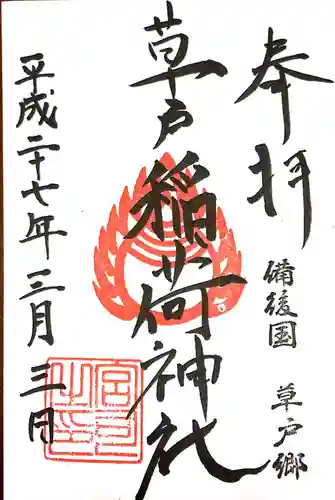 奉拝
備後国
草戸郷
草戸稲荷神社
平成二十七年三月三日